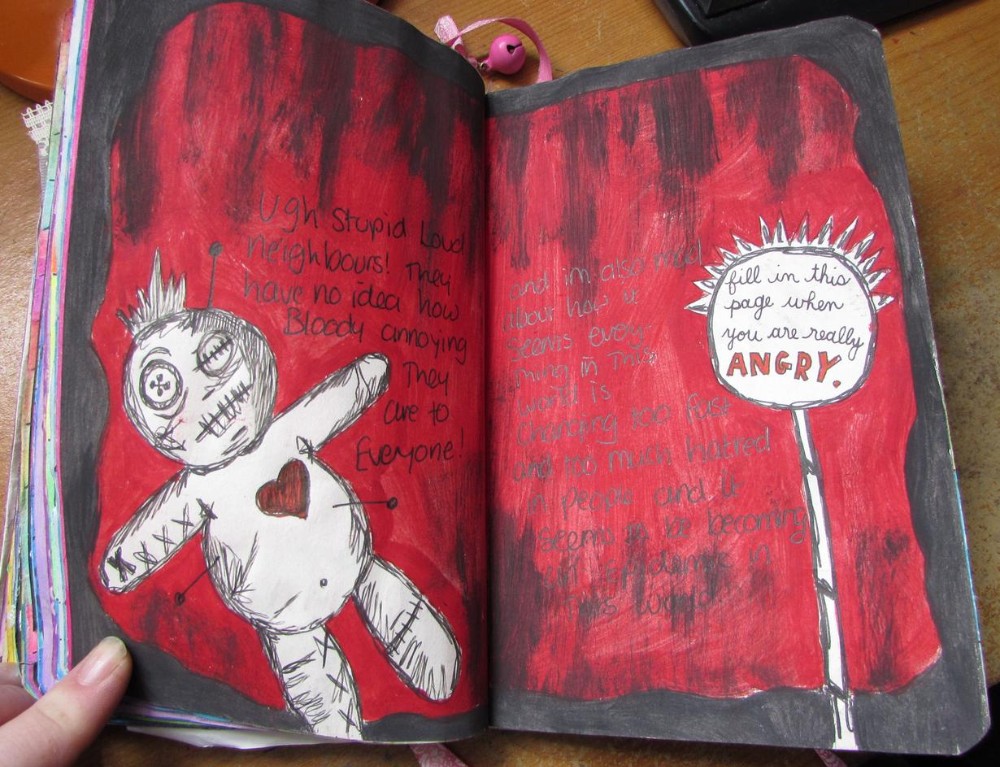 Ugh Stupid Loud
neighbours! They
have no idea how
Bloody annoying
They
are to
Everyone!
and im also mad
about how it
seems every-
thing in This
world is
Changing too fast
and too much hatred
in people and it
seems to be becoming
an epidemic in
This world
fill in this
page when
you are really
ANGRY.